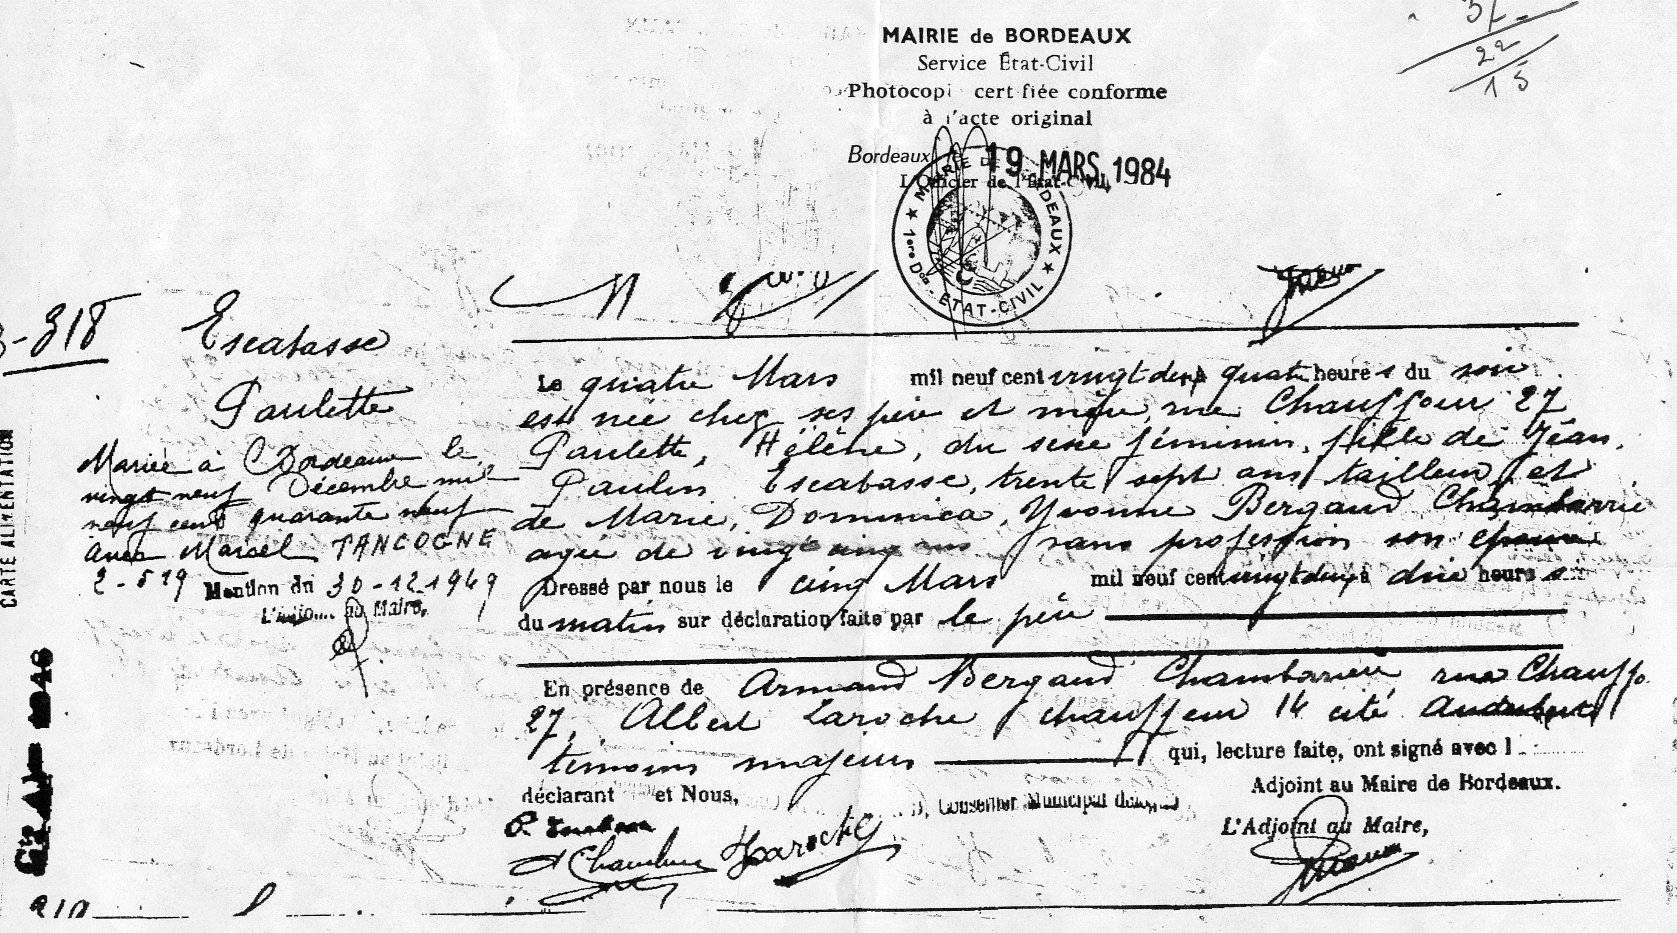 37
22
15
MAIRIE de BORDEAUX
Service État-Civil
Photocopi cert fiée conforme
à l'acte original
Bordeaux, le 19 MARS 1984
L'Officier de l'État-Civil,
★ MAIRIE DE BORDEAUX ★ 1ère Don - ETAT-CIVIL
3-318
Escabasse
Paulette
Mariée à Bordeaux le
vingt neuf Décembre mil
neuf cent quarante neuf
avec Marcel TANCOGNE
2-519 Mention du 30-12-1949
L'Adjoint au Maire,
CARTE ALIMENTATION
Le quatre Mars mil neuf cent vingt deux à quatre heures du soir
est née chez ses père et mère, rue Chauffour 27
Paulette, Hélène, du sexe féminin, fille de Jean,
Paulin Escabasse, trente sept ans tailleur, et
de Marie, Dominica, Yvonne Bergaud Chambarrière
agée de vingt cinq ans sans profession son épouse
Dressé par nous le cinq Mars mil neuf cent vingt deux à dix heures
du matin sur déclaration faite par le père
En présence de Armand Bergaud Chambarrière rue Chauffo
27, Albert Laroche chauffeur 14 cité
témoins majeurs qui, lecture faite, ont signé avec l
déclarant et Nous, Conseiller Municipal délégué
Adjoint au Maire de Bordeaux.
L'Adjoint au Maire,
Laroche
310